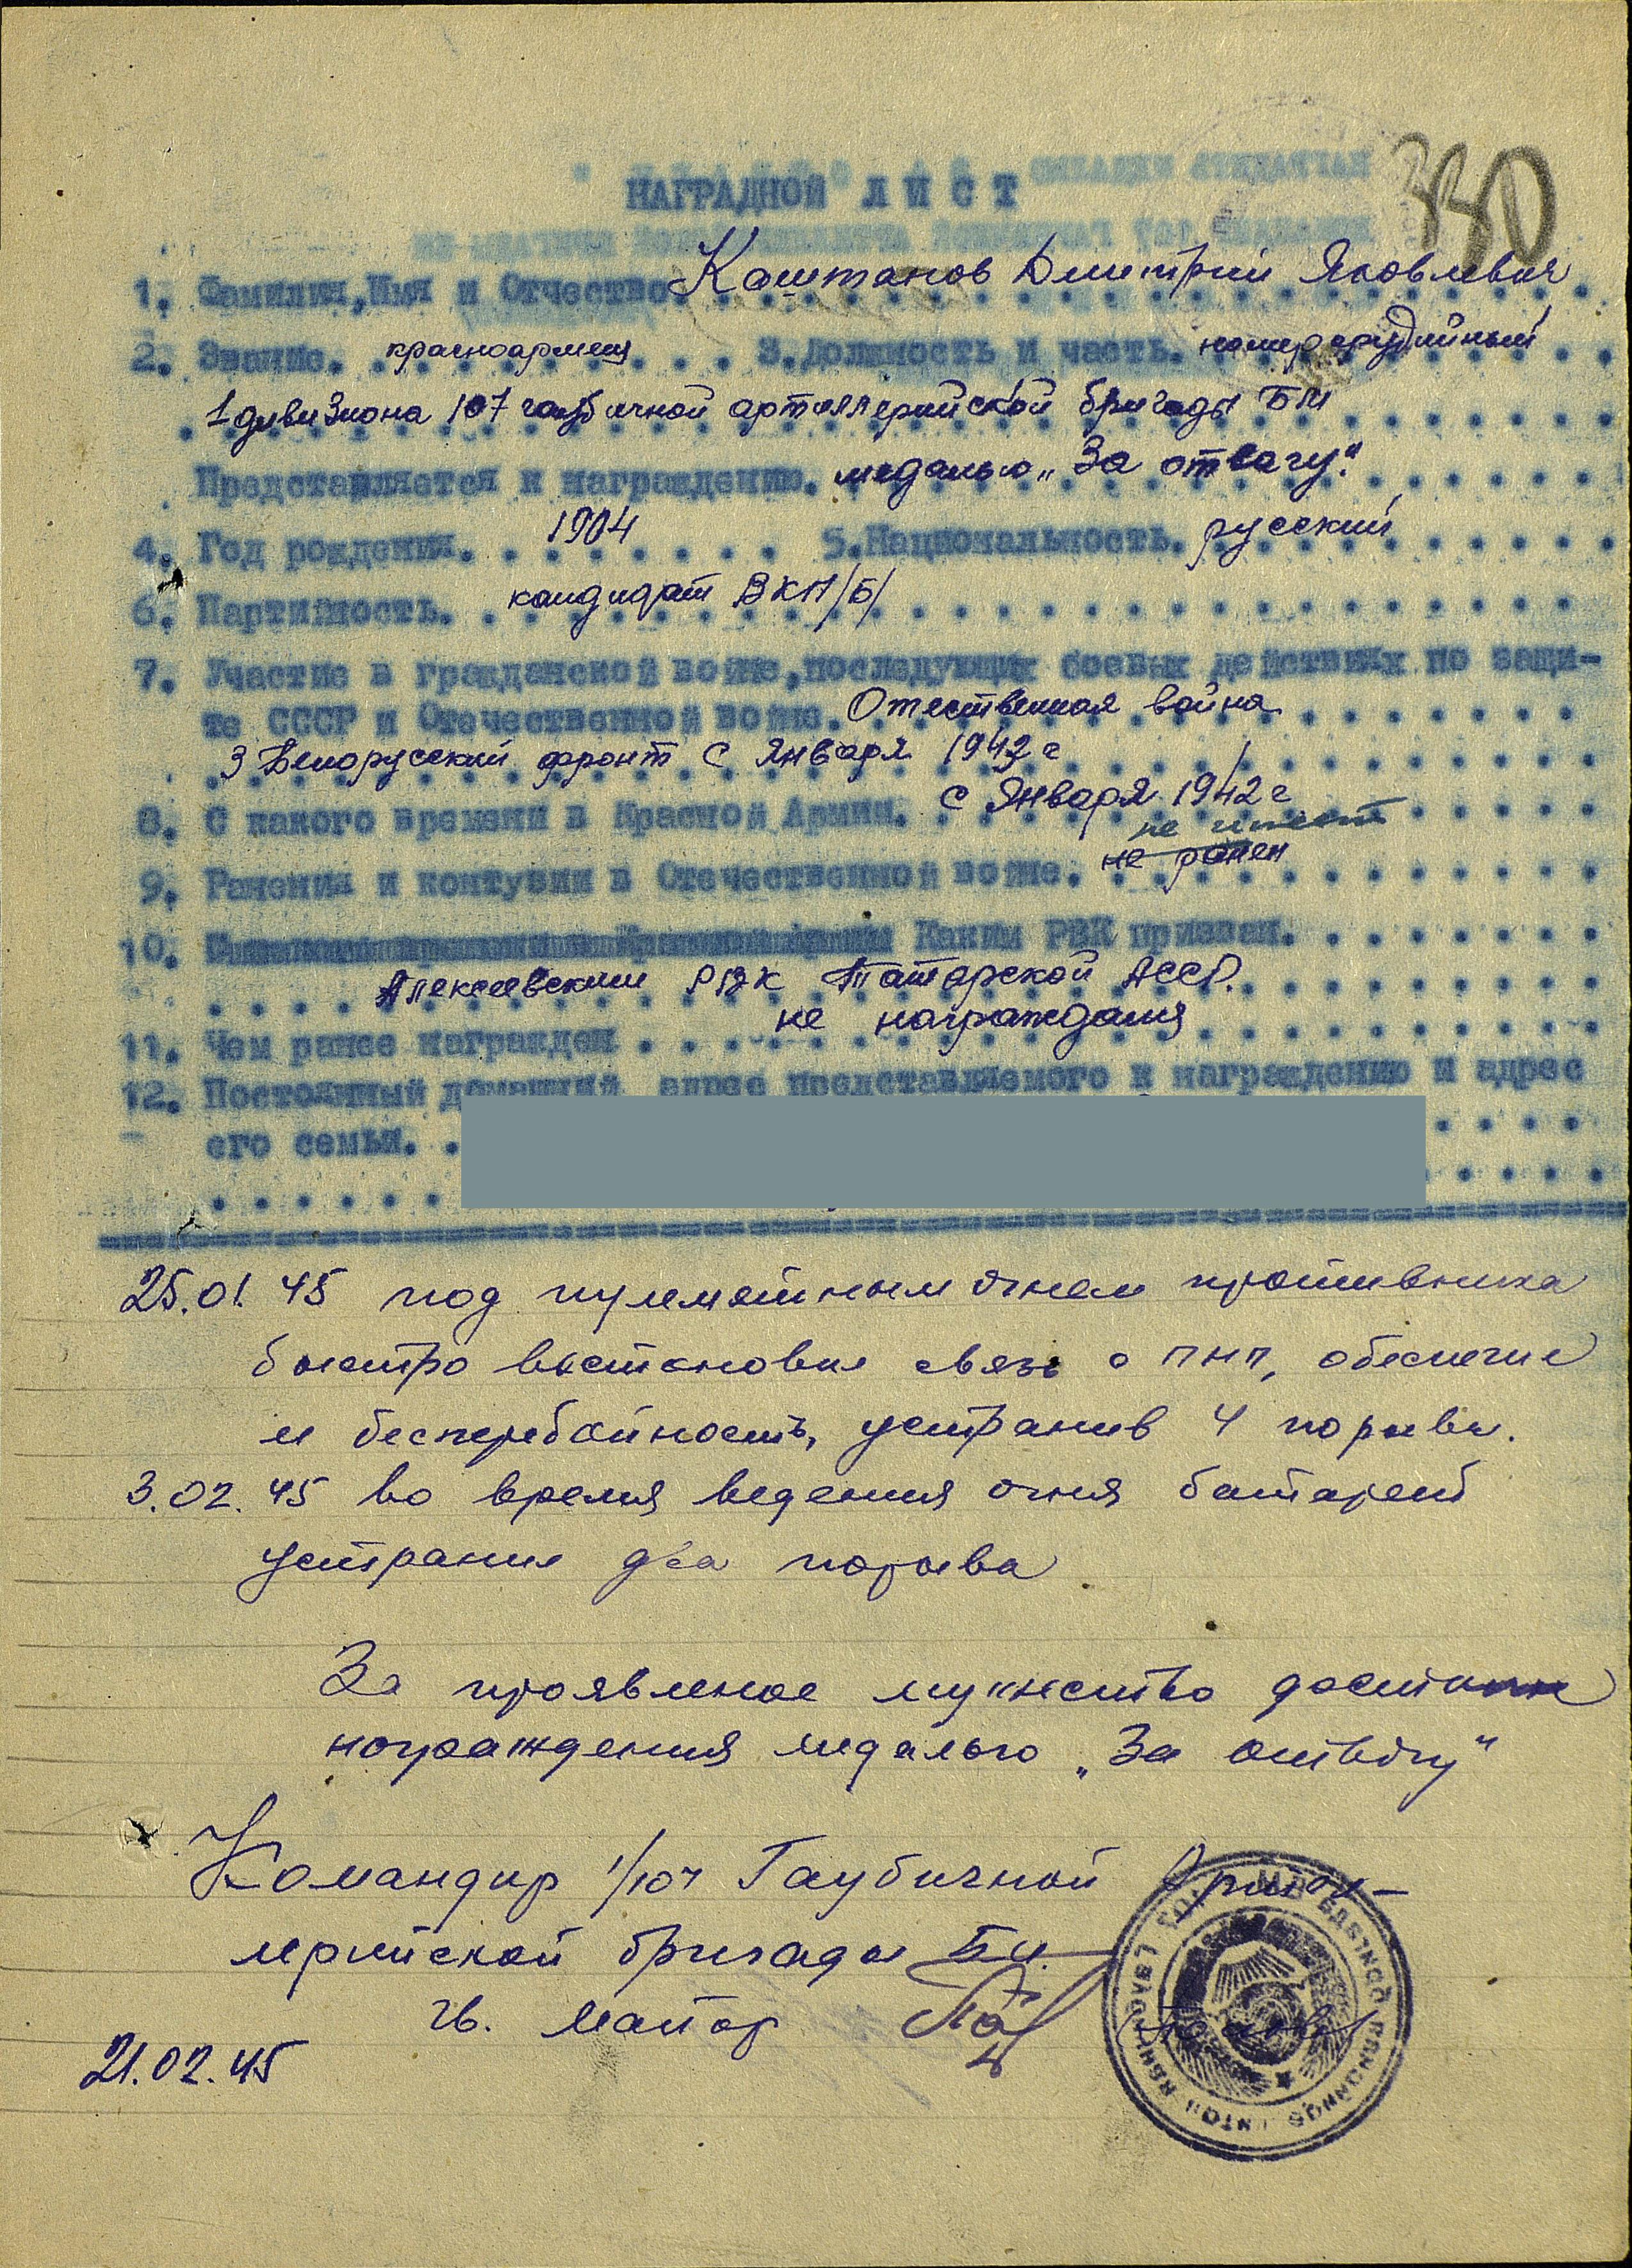 380
НАГРАДНОЙ ЛИСТ
1. Фамилия, Имя и Отчество Каштанов Дмитрий Яковлевич
2. Звание. красноармеец 3. Должность и часть. номер орудийный
1 дивизиона 107 гаубичной артиллерийской бригады БМ
Представляется к награждению. медалью „За отвагу".
4. Год рождения. 1904 5. Национальность. русский
6. Партийность. кандидат ВКП/б/
7. Участие в гражданской войне, последующих боевых действиях по защи-
те СССР и Отечественной войне. Отечественная война
3 Белорусский фронт с января 1942 г
8. С какого времени в Красной Армии. с января 1942 г
не имеет
9. Ранения и контузии в Отечественной войне. не ранен
10. Каким РВК призван.
Алексеевским РВК Татарской АССР.
11. Чем ранее награжден не награждался
12. Постоянный домашний адрес представляемого к награждению и адрес
его семьи.
25.01.45 под пулеметным огнем противника
быстро востановил связь с ПНП, обеспечил
и бесперебойность, устранив 4 порыва.
3.02.45 во время ведения огня батареей
устранил два порыва
За проявленое мужество достоин
награждения медалью „За отвагу"
Командир 1/107 Гаубичной Артил-
лерийской бригады БМ.
гв. майор
21.02.45